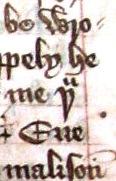 be wyo-
pely he
me yͭ
Eue
malison